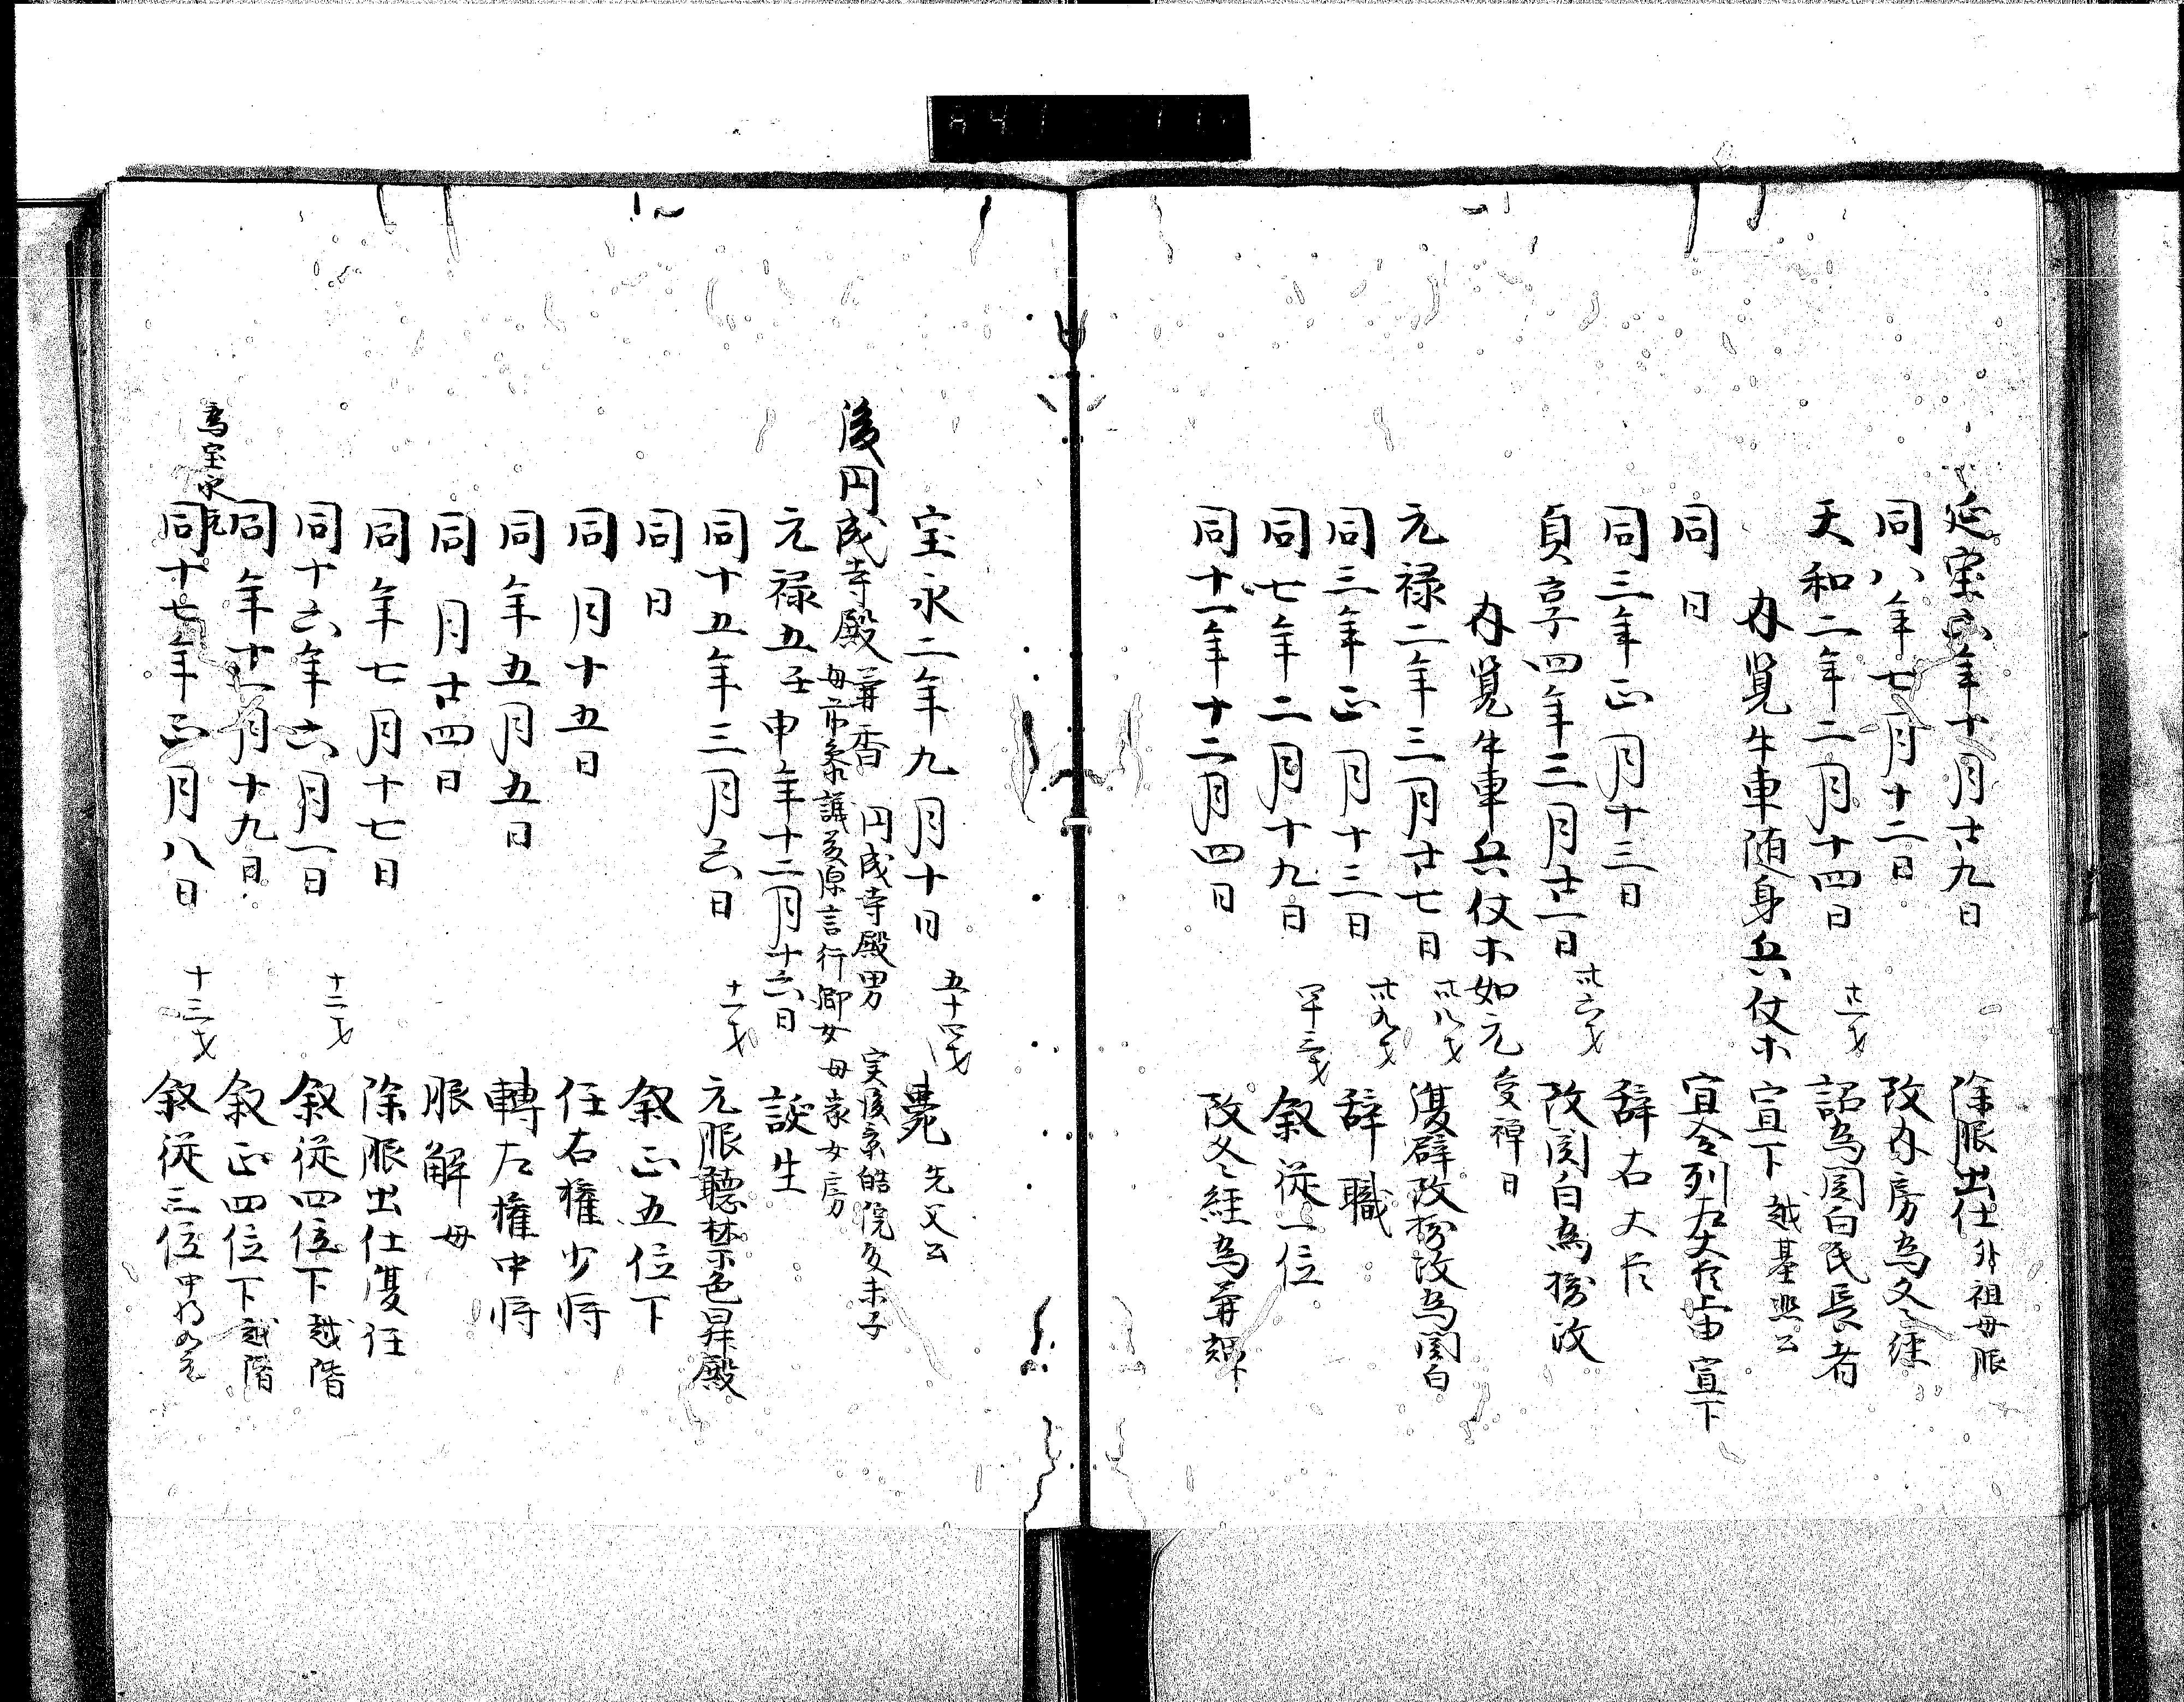 延宝六年十月廿九日　除服出仕 外祖母服
同八年七月十二日　改内房為冬経
天和二年二月十四日　卅一才　詔為関白氏長者
内覧牛車随身兵仗ホ　宣下 越基熙公
同日　宣令列左大臣上由 宣下
同三年正月十三日　辞右大臣
貞享四年三月廿一日　卅六才　改関白為摂政
内覧牛車兵仗ホ如元 受禅日
元禄二年三月廿七日　卅八才　復辟改摂政為関白
同三年正月十三日　卅九才　辞職
同七年二月十九日　四十三才　叙従一位
同十一年十二月四日　改冬経為兼輝
宝永二年九月十日　五十四才　薨 先父公
後円成寺殿 兼香 円成寺殿男 実後京皓院度末子
母前参議藤原言行卿女 母家女房
元禄五壬申年十二月十六日　誕生
同十五年三月六日　十一才　元服聴禁色昇殿
同日　叙正五位下
同月十五日　任右権少将
同年五月五日　転左権中将
同月廿四日　服解 母
同年七月十七日　除服出仕復任
同十六年六月一日　十二才　叙従四位下 越階
同年十一月十九日　叙正四位下 越階
為宝永元
同十七年正月八日　十三才　叙従三位 中将如元